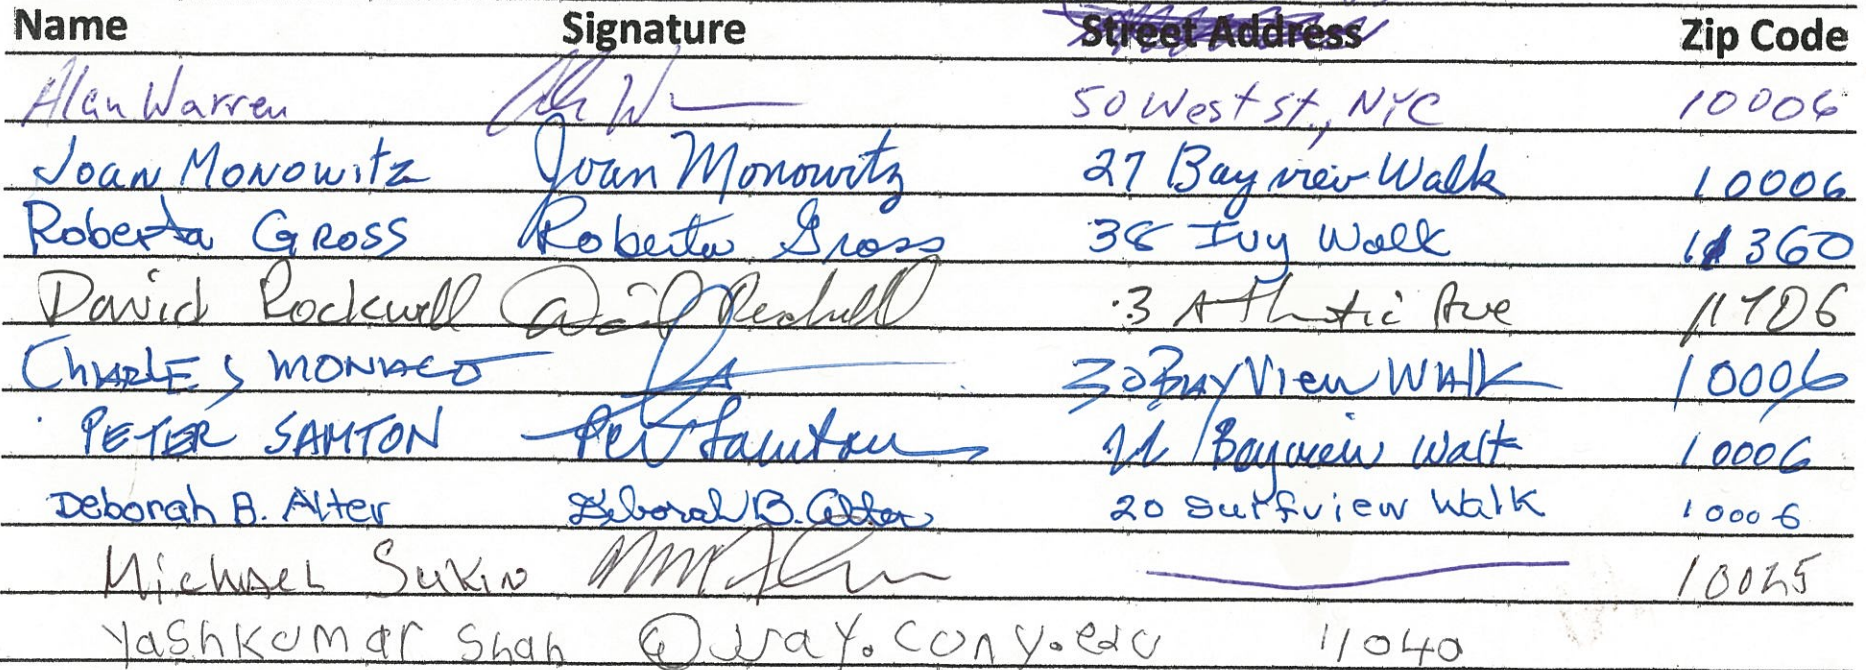 Name Signature Street Address Zip Code
Alan Warren 50 West st., NYC 10006
Joan Monowitz Joan Monowitz 27 Bayview Walk 10006
Roberta Gross Roberta Gross 38 Ivy Walk 11360
David Rockwell David Rockwell 3 Atlantic Ave 11706
CHARLES MONACO 30 BayView Walk 10006
PETER SAMTON Peter Samton Bayview Walk 10006
Deborah B. Alter Deborah B. Alter 20 Surfview Walk 10006
Michael Sukin 10025
Yashkumar Shah @ .cony.edu 11040